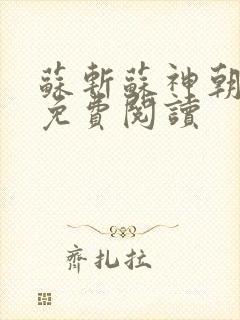 蘇斬蘇神朝
免費閱讀
齊扎拉